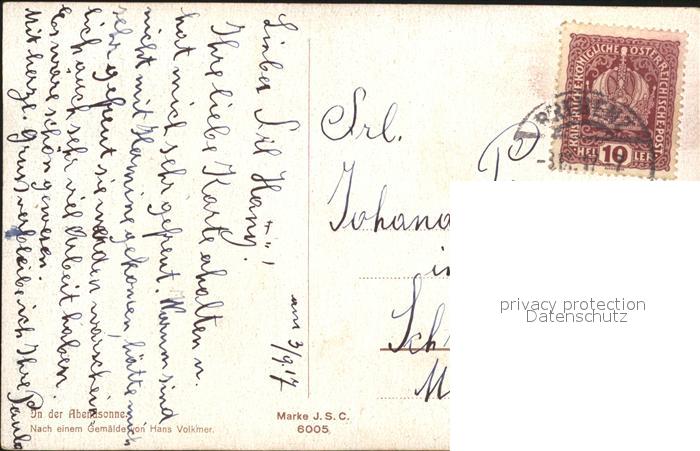 am 3/9.17
Liebes Frl Hany!
Ihre liebe Karte erhalten u.
hat mich sehr gefreut. Warum sind
nicht mit Hermine gekomen, hätte mich
sehr gefreut sie werden warschein
lich auch sehr viel Arbeit haben.
Es wäre schön gewesen.
Mit herzl. Gruss verbleibe ich Ihre Paula
In der Abendsonne.
Nach einem Gemälde von Hans Volkmer.
Marke J. S. C.
6005
Frl.
Johana
in
Sch
M
KAISERLICHE KÖNIGLICHE ÖSTERREICHISCHE POST
HELLER 10 HELLER
privacy protection
Datenschutz